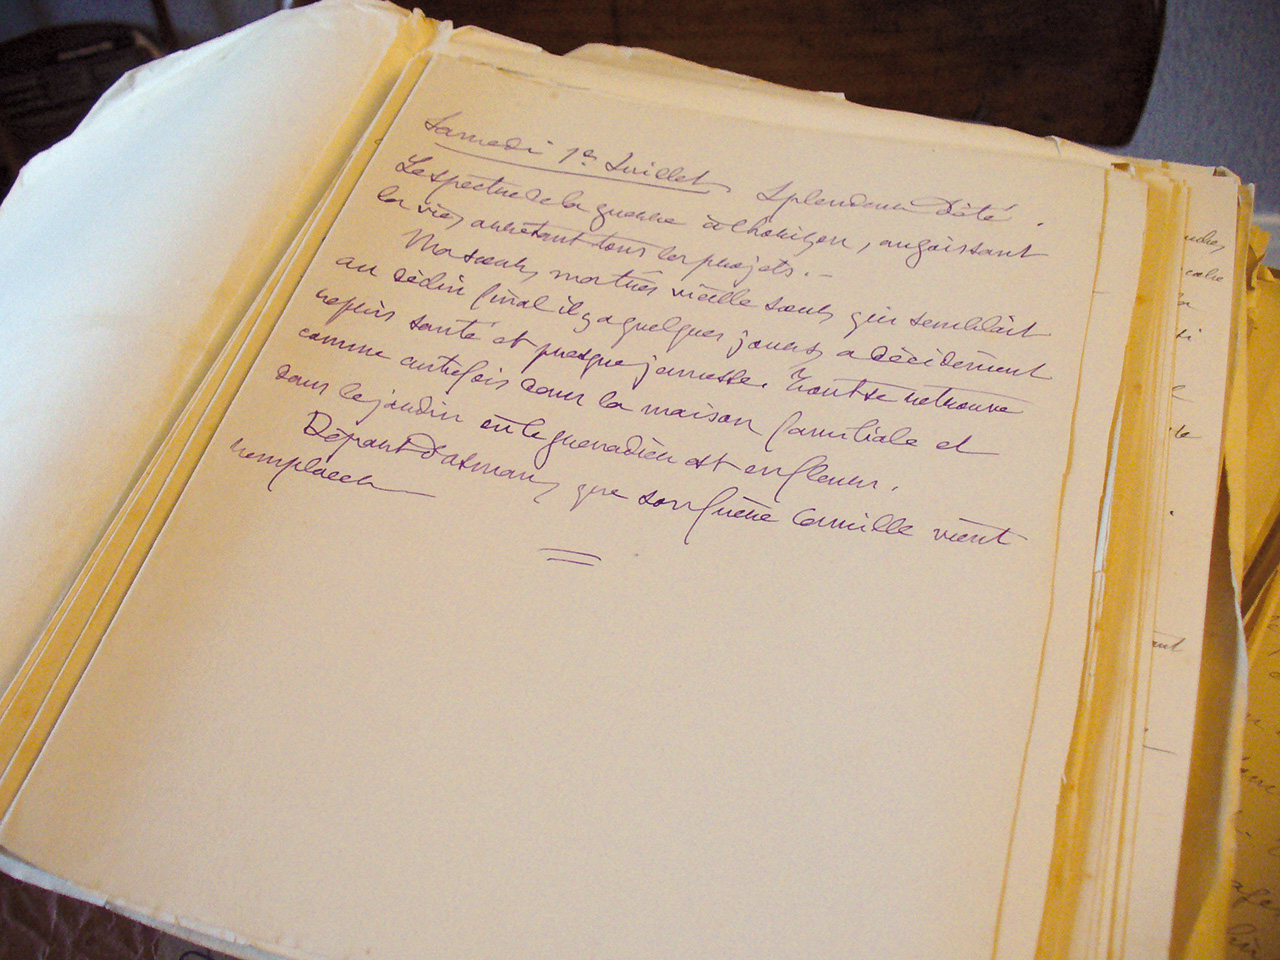 Samedi 1er Juillet Splendeur d'été.
Le spectre de la guerre à l'horizon, angoissant
la vie, arrêtant tous les projets. -
Ma sœur, ma très vieille sœur qui semblait
au déclin final il y a quelques jours, a décidément
repris santé et presque jeunesse. Tout se retrouve
comme autrefois dans la maison familiale et
dans le jardin où le grenadier est en fleurs.
Départ d'Osman, que son frère Camille vient
remplacer